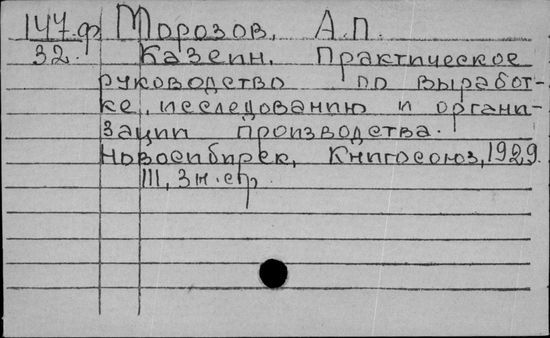 147.ф Морозов, А.П.
32. Казеин. Практическое
руководство по выработ-
ке, исследованию и органи-
зации производства.
Новосибирск, Книгосоюз, 1929.
III, 3 н. стр.